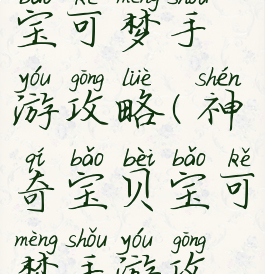 bǎo kě mèng shǒu
宝可梦手
yóu gōng lüè shén
游攻略(神
qí bǎo bèi bǎo kě
奇宝贝宝可
mèng shǒu yóu gōng
梦手游攻